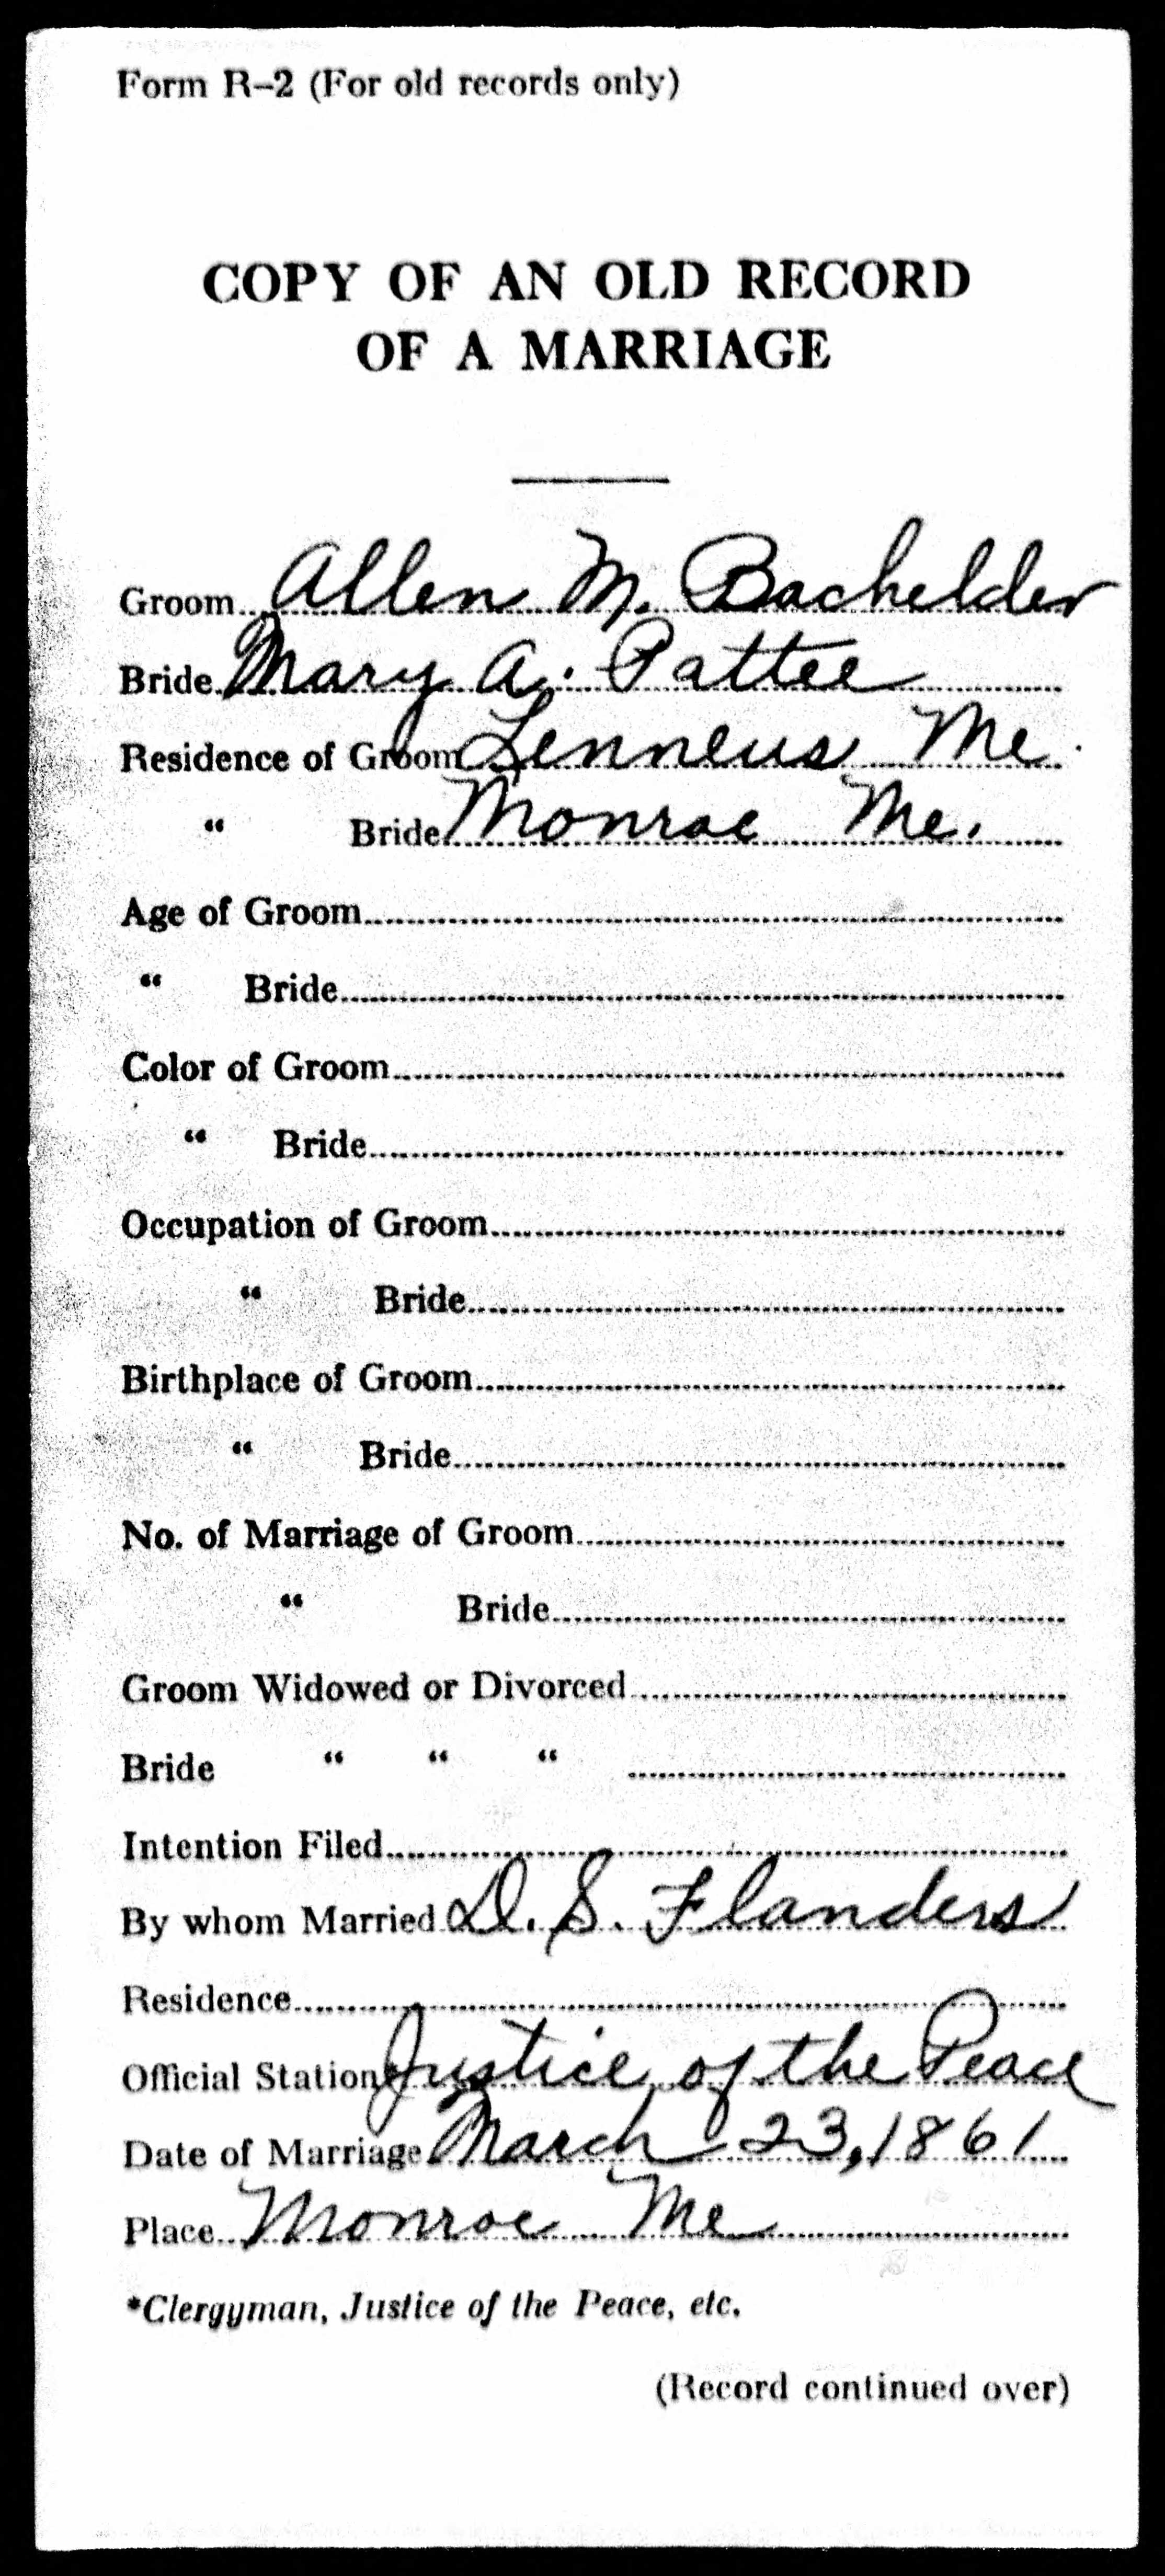 Form R-2 (For old records only)
COPY OF AN OLD RECORD
OF A MARRIAGE
Groom Allen M. Bachelder
Bride Mary A. Pattee
Residence of Groom Lenneus Me.
" Bride Monroe Me.
Age of Groom
" Bride
Color of Groom
" Bride
Occupation of Groom
" Bride
Birthplace of Groom
" Bride
No. of Marriage of Groom
" Bride
Groom Widowed or Divorced
Bride " " "
Intention Filed
By whom Married D. S. Flanders
Residence
Official Station Justice of the Peace
Date of Marriage March 23, 1861
Place Monroe Me
*Clergyman, Justice of the Peace, etc.
(Record continued over)